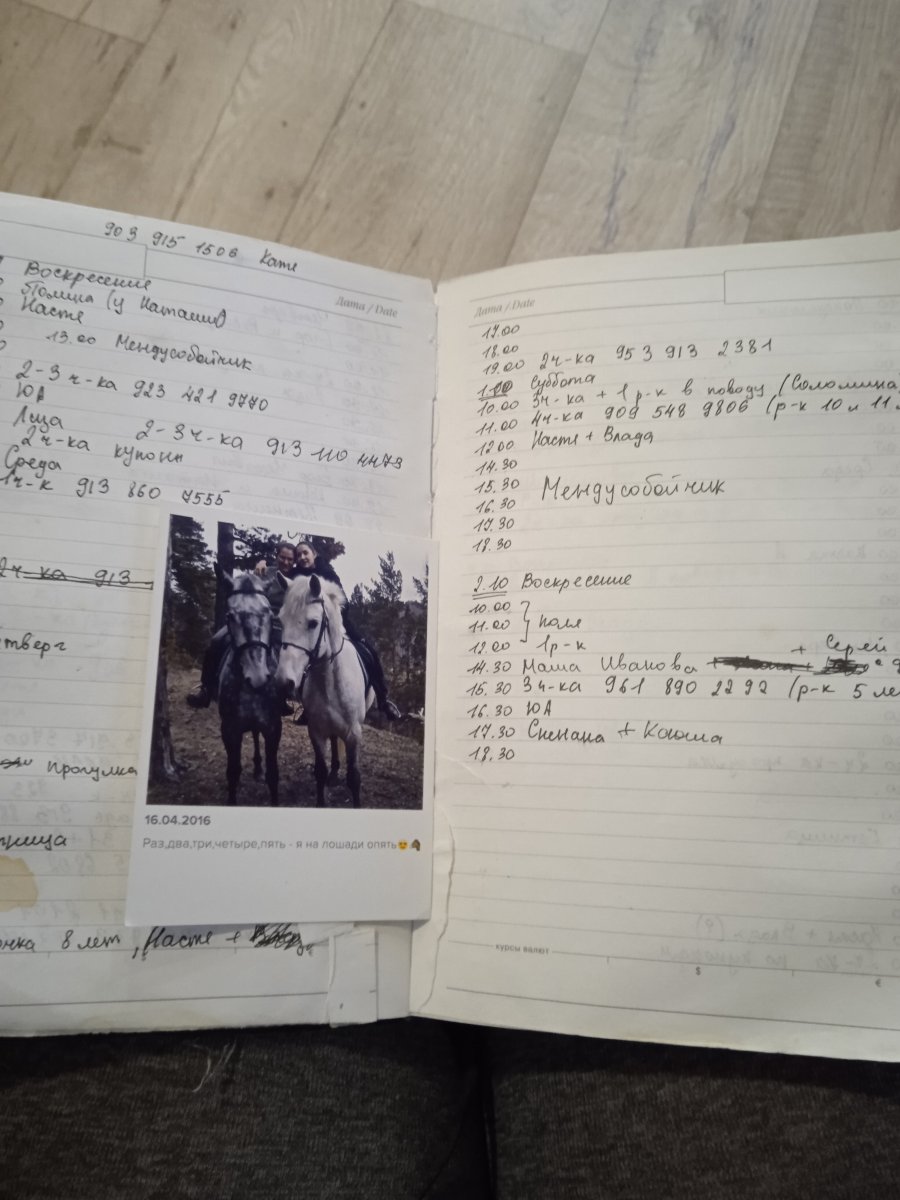 903 915 1506 Катя
Дата / Date
Воскресенье
Полина (у Наташи)
Настя
13.00 Междусобойчик
2-3 ч-ка 923 421 9770
ЮА
Лиза 2-3 ч-ка 913 110 4473
2ч-ка купон
Среда
1ч-к 913 860 7555
2ч-ка 913
тверг
прогулка
тница
8 лет, Настя +
16.04.2016
Раз,два,три,четыре,пять - я на лошади опять😍🐴
Дата / Date
17.00
18.00
19.00 2ч-ка 953 913 2381
1.10 Суббота
10.00 3ч-ка + 1 р-к в поводу (Соломина
11.00 4ч-ка 909 548 9806 (р-к 10 и 11 л
12.00 Настя + Влада
14.30
15.30 Междусобойчик
16.30
17.30
18.30
2.10 Воскресение
10.00
11.00 поле
12.00 1р-к
+ Серей
14.30 Маша Иванова
15.30 3ч-ка 961 890 2292 (р-к 5 ле
16.30 ЮА
17.30 Снежана + Ксюша
18.30
курсы валют
$
€